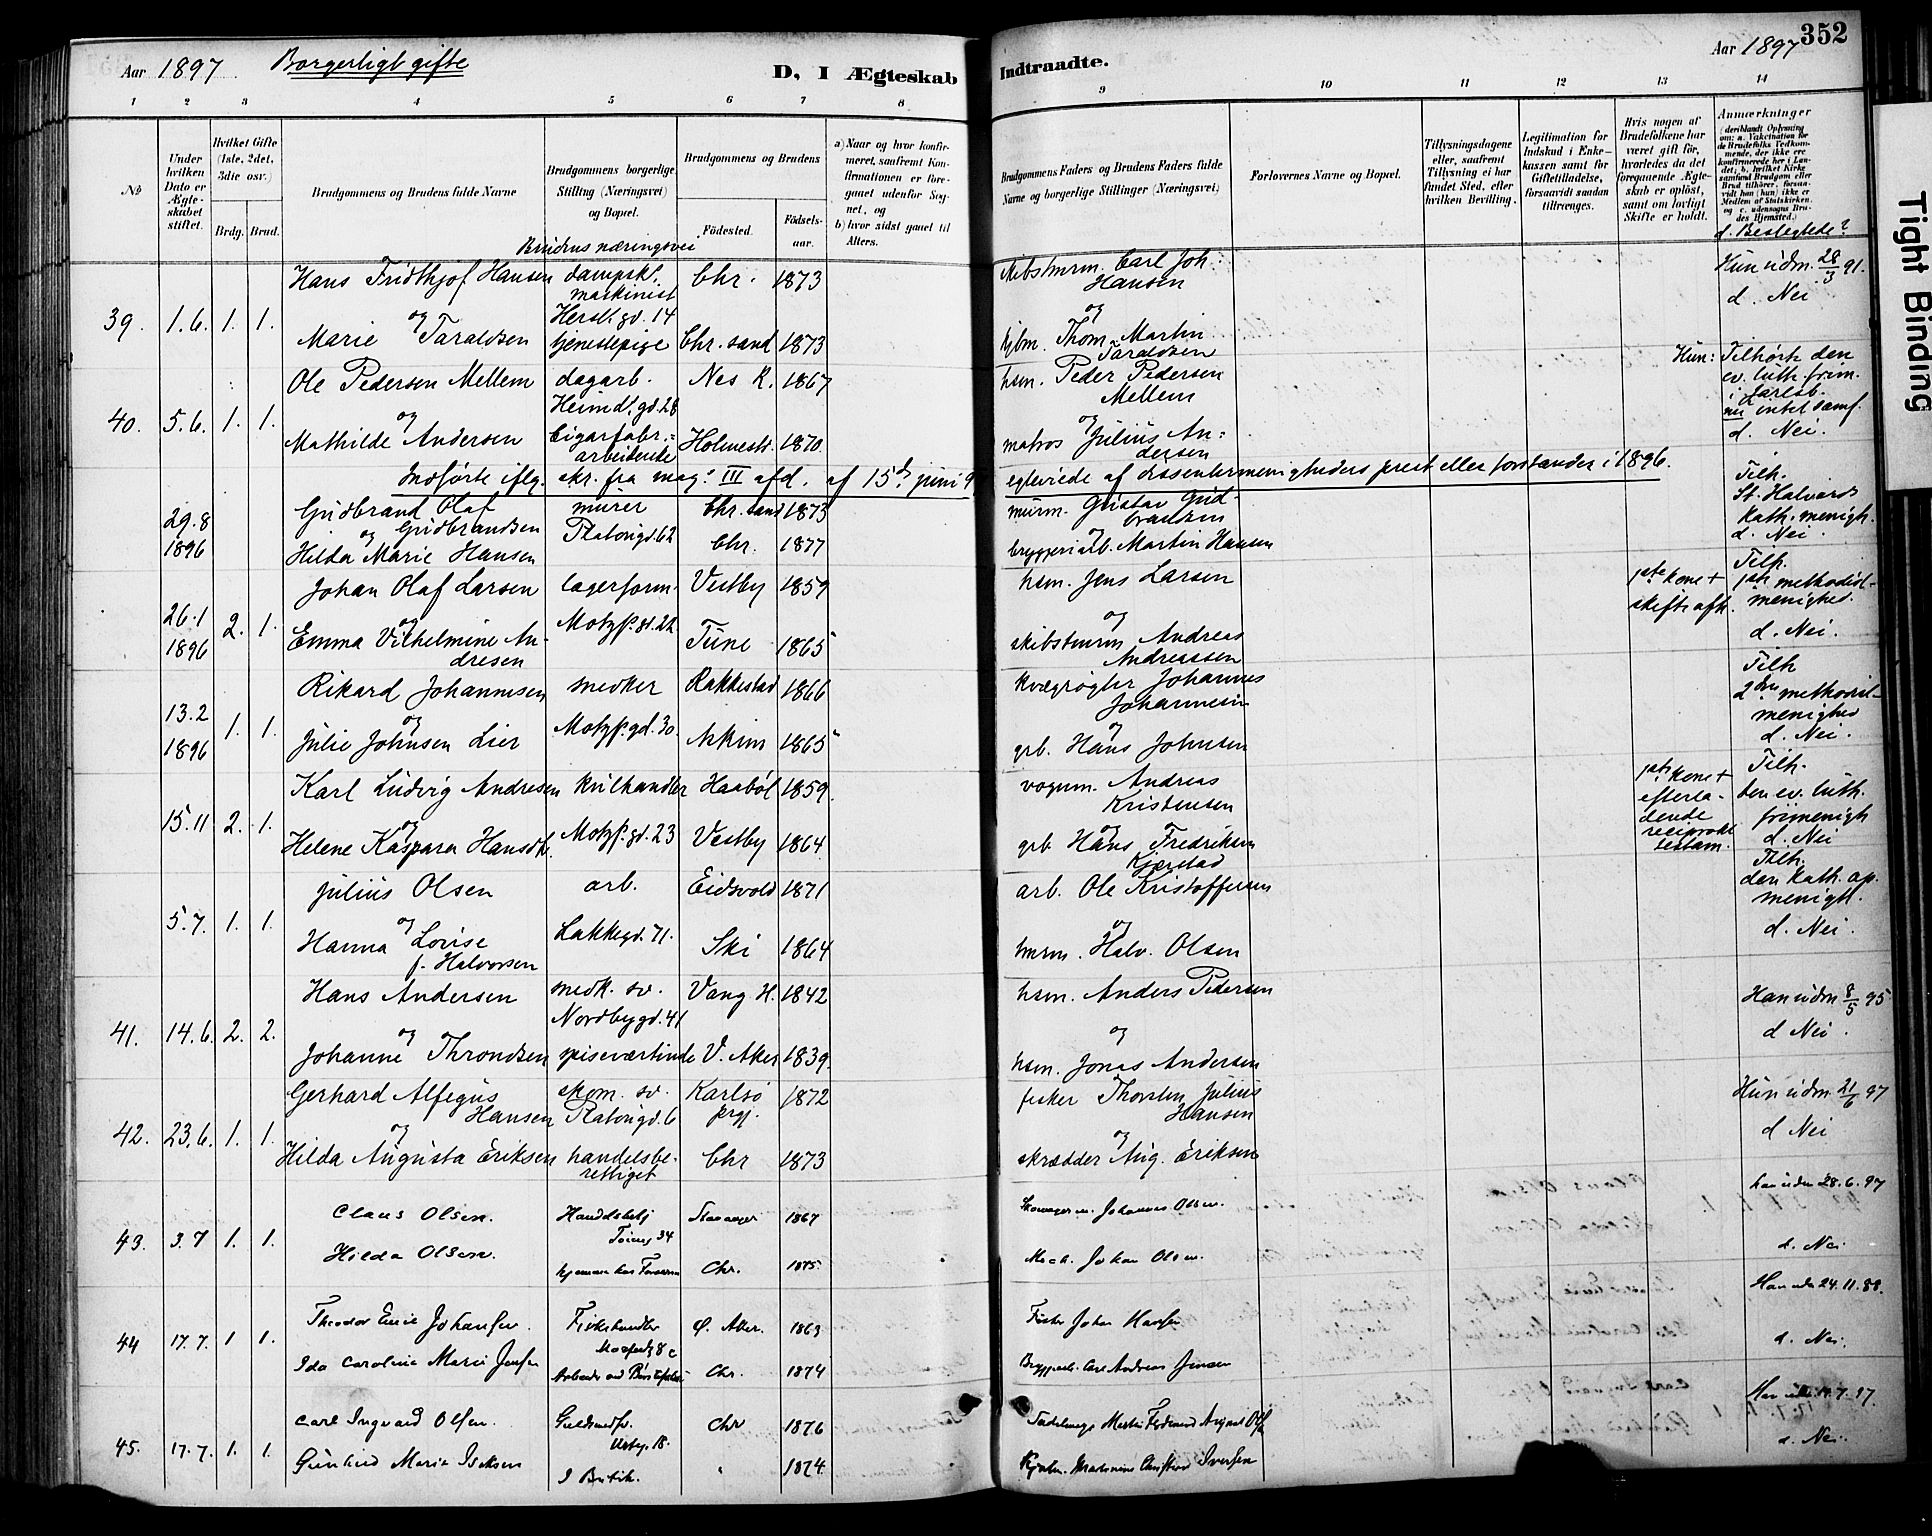 352
Aar 1897 Borgerligt gifte
D, I Ægteskab
Indtraadte.
Aar 1897
1 2 3 4 5 6 7 8
9 10 11 12 13 14
No
Under hvilken Dato er Ægteskabet stiftet.
Hvilket Gifte (1ste, 2det, 3die osv.)
Brdg. Brud.
Brudgommens og Brudens fulde Navne
Brudgommens borgerlige Stilling (Næringsvei) og Bopæl.
Brudens næringsvei
Brudgommens og Brudens
Fødested. Fødselsaar.
a) Naar og hvor konfirmeret, saafremt Konfirmationen er foregaaet udenfor Sognet, og
b) hvor sidst gaaet til Alters.
Brudgommens Faders og Brudens Faders fulde Navne og borgerlige Stillinger (Næringsvei)
Forlovernes Navne og Bopæl.
Tillysningsdagene eller, saafremt Tillysning ei har fundet Sted, efter hvilken Bevilling.
Legitimation for Indskud i Enkekassen samt for Giftetilladelse, forsaavidt saadan tiltrænges.
Hvis nogen af Brudefolkene har været gift før, hvorledes da det foregaaende Ægteskab er opløst, samt om lovligt Skifte er holdt.
Anmærkninger
(deriblandt Oplysning om: a. Vakcination for de Brudefolks Vedkommende, der ikke ere konfirmerede her i Landet; b. hvilket Kirkesamfund Brudgom eller Brud tilhører, forsaavidt han (hun) ikke er Medlem af Statskirken, og c. udensogns Brudes Hjemsted.)
d. Beslegtede?
Hans Fridthjof Hansen dampsk. maskinist Chr. 1873 skibstmrm. Carl Joh. Hansen Hun udm. 28/3 91.
39. 1.6. 1. 1. og Hersl. gd. 14 og d. Nei
Marie Taraldsen tjenestepige Chr. sand 1873 kjbm. Thom. Martin Taraldsen
Ole Pedersen Mellem dagarb. Nes R. 1867 hsm. Peder Pedersen Mellem Hun: Tilhørte den ev. luth. frim. i Jarlsb.
40. 5.6. 1. 1. og Heimdl. gd. 28 og nu intet samf.
Mathilde Andersen Cigarfabr.= arbeiderske Holmestr. 1870 matros Julius Andersen d. Nei.
Indførte iflg. skr. fra mag.s III afd. af 15de juni 9
egteviede af dissentermenigheders prest eller forstander i 1896.
29.8 1896 Gudbrand Olaf Gudbrandsen murer Chr. sand 1873 murm. Gustav Gudbrandsen Tilh. St. Halvards kath. menigh.
og Platousgd. 62 og
Hilda Marie Hansen Chr. 1877 bryggeriarb. Martin Hansen d. Nei.
Johan Olaf Larsen lagerform. Vestby 1859 hsm. Jens Larsen 1ste kone + skifte afh. Tilh. 1ste methodist-menighed.
26.1 1896 2. 1. og Motzf. gd. 22 og
Emma Vilhelmine Andresen Tune 1865 skibstmrm Andreas Andreassen d. Nei.
Rikard Johannesen snedker Rakkestad 1866 kvægrøgter Johannes Johannesen Tilh 2den methodist-menighed
13.2 1896 1. 1. og Motzf. gd. 30. og
Julie Johnsen Lier Askim 1865 grb. Hans Johnsen d. Nei.
Karl Ludvig Andresen kulhandler Haabøl 1859. vognm. Andreas Kristensen 1ste kone + efterladende reciprokt testam. Tilh. den ev. luth. frimenigh
15.11 2. 1. og Motzf. gd. 23 og
Helene Kaspara Hansdtr. Vestby 1864 grb. Hans Fredriksen Kjærstad d. Nei
Julius Olsen arb. Eidsvold 1871 arb. Ole Kristoffersen Tilh. den kath. ap. menigh.
5.7. 1. 1. og Lakkegd. 71. og
Hanna Lovise f. Halvorsen Ski 1864 tmrm. Halv. Olsen d. Nei.
Hans Andersen snedk. sv. Vang H. 1842 hsm. Anders Pedersen Han udm 8/5 95
41. 14.6. 2. 2. og Nordbygd. 41 og d Nei.
Johanne Throndsen spiseværtinde V. Aker 1839. hsm. Jonas Andersen
Gerhard Alfegus Hansen skom. sv. Platougd. 6 Karlsø prgj. 1872 fisker Thorsten Julius Hansen Hun udm 21/6 97
42. 23.6. 1. 1. og og d Nei
Hilda Augusta Eriksen handelsberettiget Chr 1873 skrædder Aug. Eriksen
Claus Olsen. Handelsbetj Tøieng 34 Stavanger 1867 Johannes Olsen. han udm 28.6.97
43. 3.7 1. 1.
Hilda Olsen. hjemme hos Chr. 1875 Mech. Johan Olsen. d. Nei
Theodor Emil Johansen. Fiskehandler Ø. Aker. 1863 Fisker Johan Hansen Han udm 24.11.88.
44 17.7. 1 1.
Ida Caroline Marie Jensen Chr. 1874 Bryggeriarb. Carl Andreas Jensen d. Nei.
Carl Ingvard Olsen. Guldsmedsv. Urteg. 18. Chr 1876 Sadelmager Martin Ferdinand August Olsen Han udm 14.7.97.
45. 17.7. 1. 1. d. Nei.
Gunhild Marie Iversen I Butik. " 1874 Christian Iversen
Tight Binding